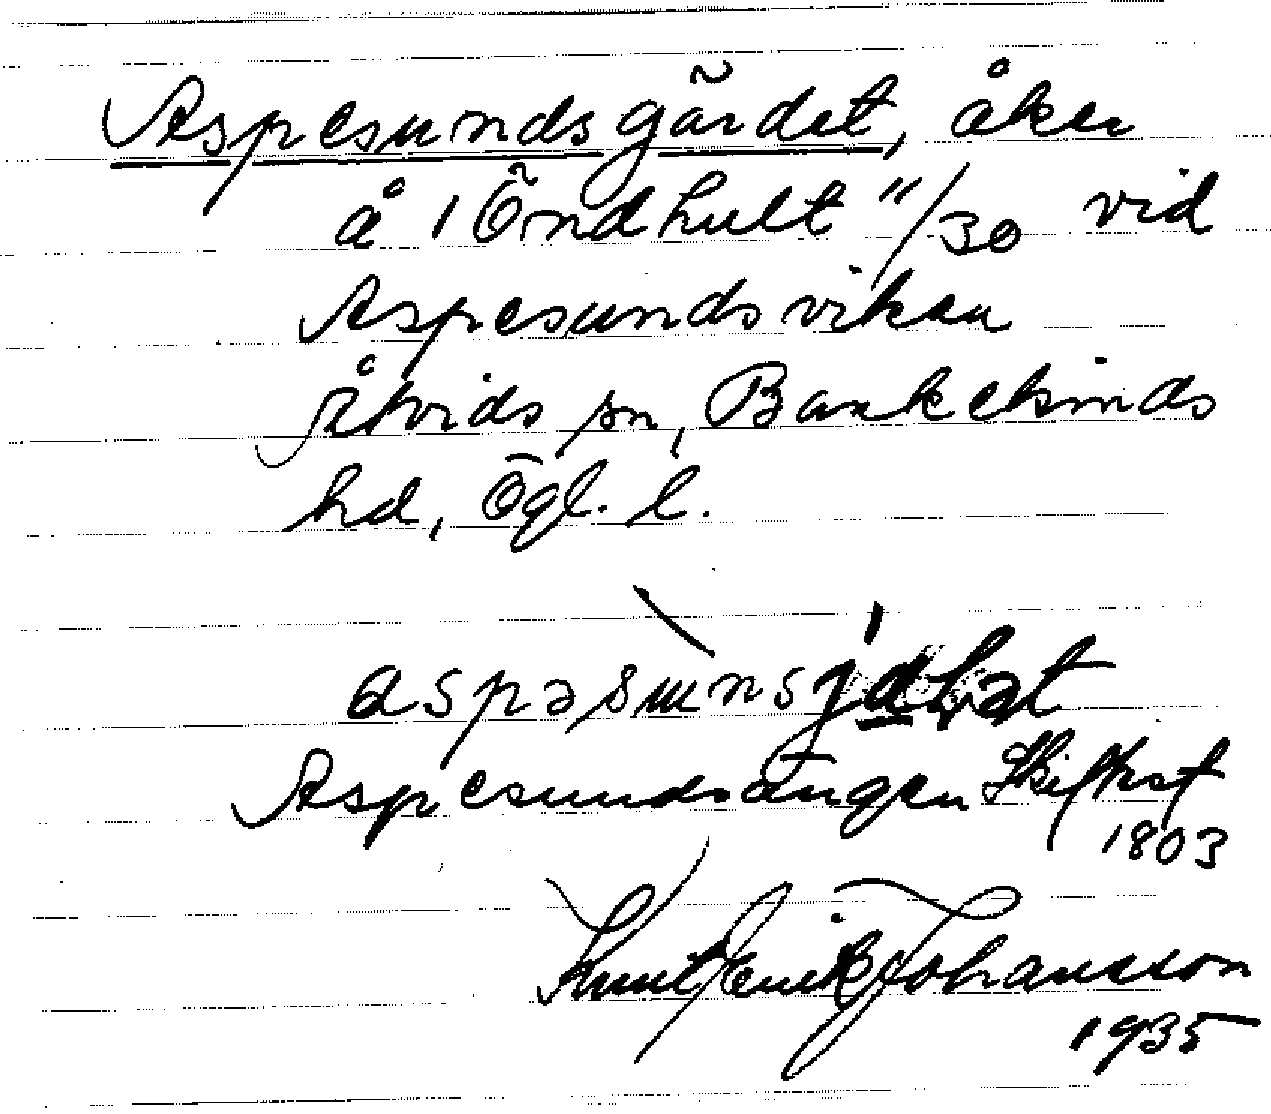 Aspesundsgärdet, åker
å 1 Öndhult 11/30 vid
Aspesundsviken
Åtvids sn, Bankekinds
hd, Ögl. l.
Aspesundsängen Skifkst
1803
Knut Erik Johansson
1935